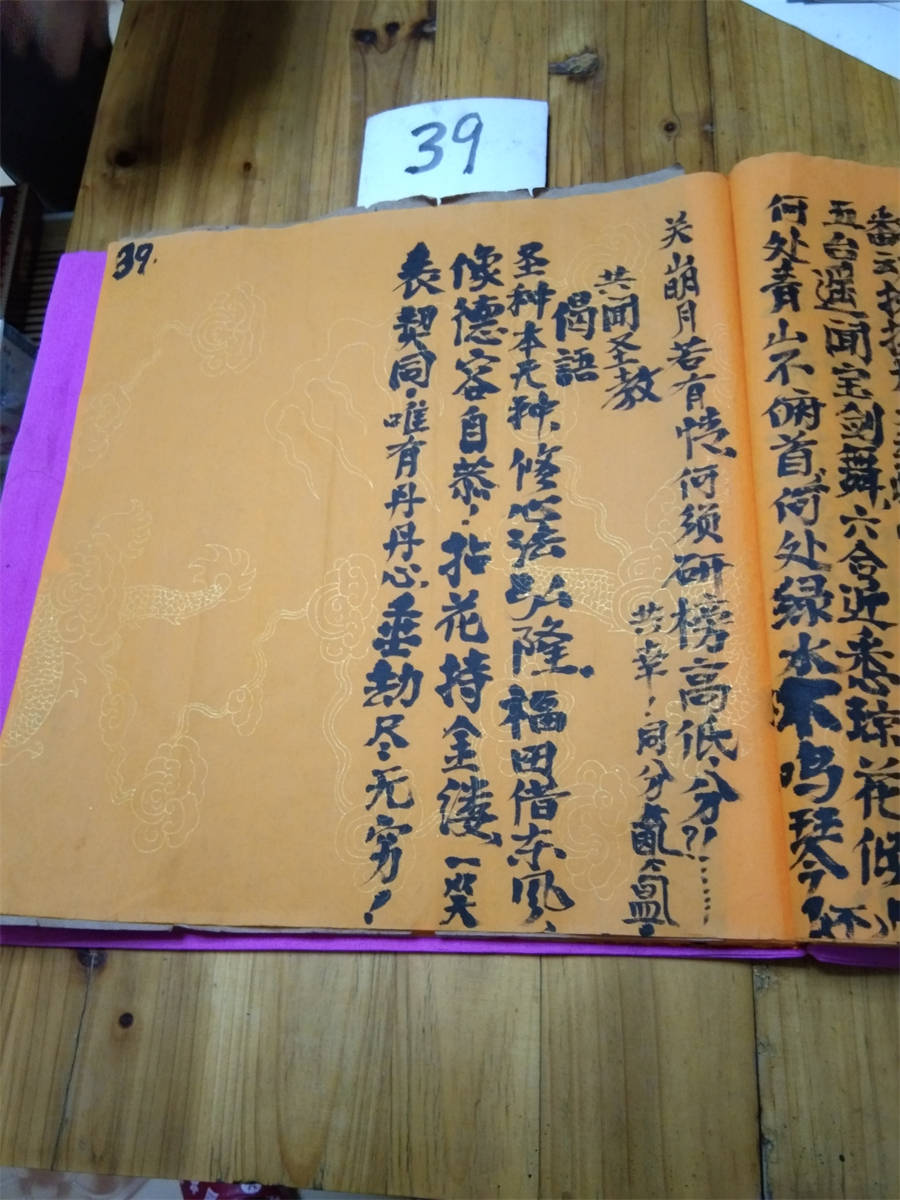 39
39.
五台遥闻宝剑舞,六合近悉琼花倾
何处青山不俯首,何处绿水不鸣琴
关山明月若有情,何须研榜高低分?!……
共闻圣教 共幸!同分
偈語
圣种本无种,修心法弘隆。福田借东风、
像德容自恭!拈花持金缕、一笑
表契同。唯有丹丹心,垂劫尽无穷!